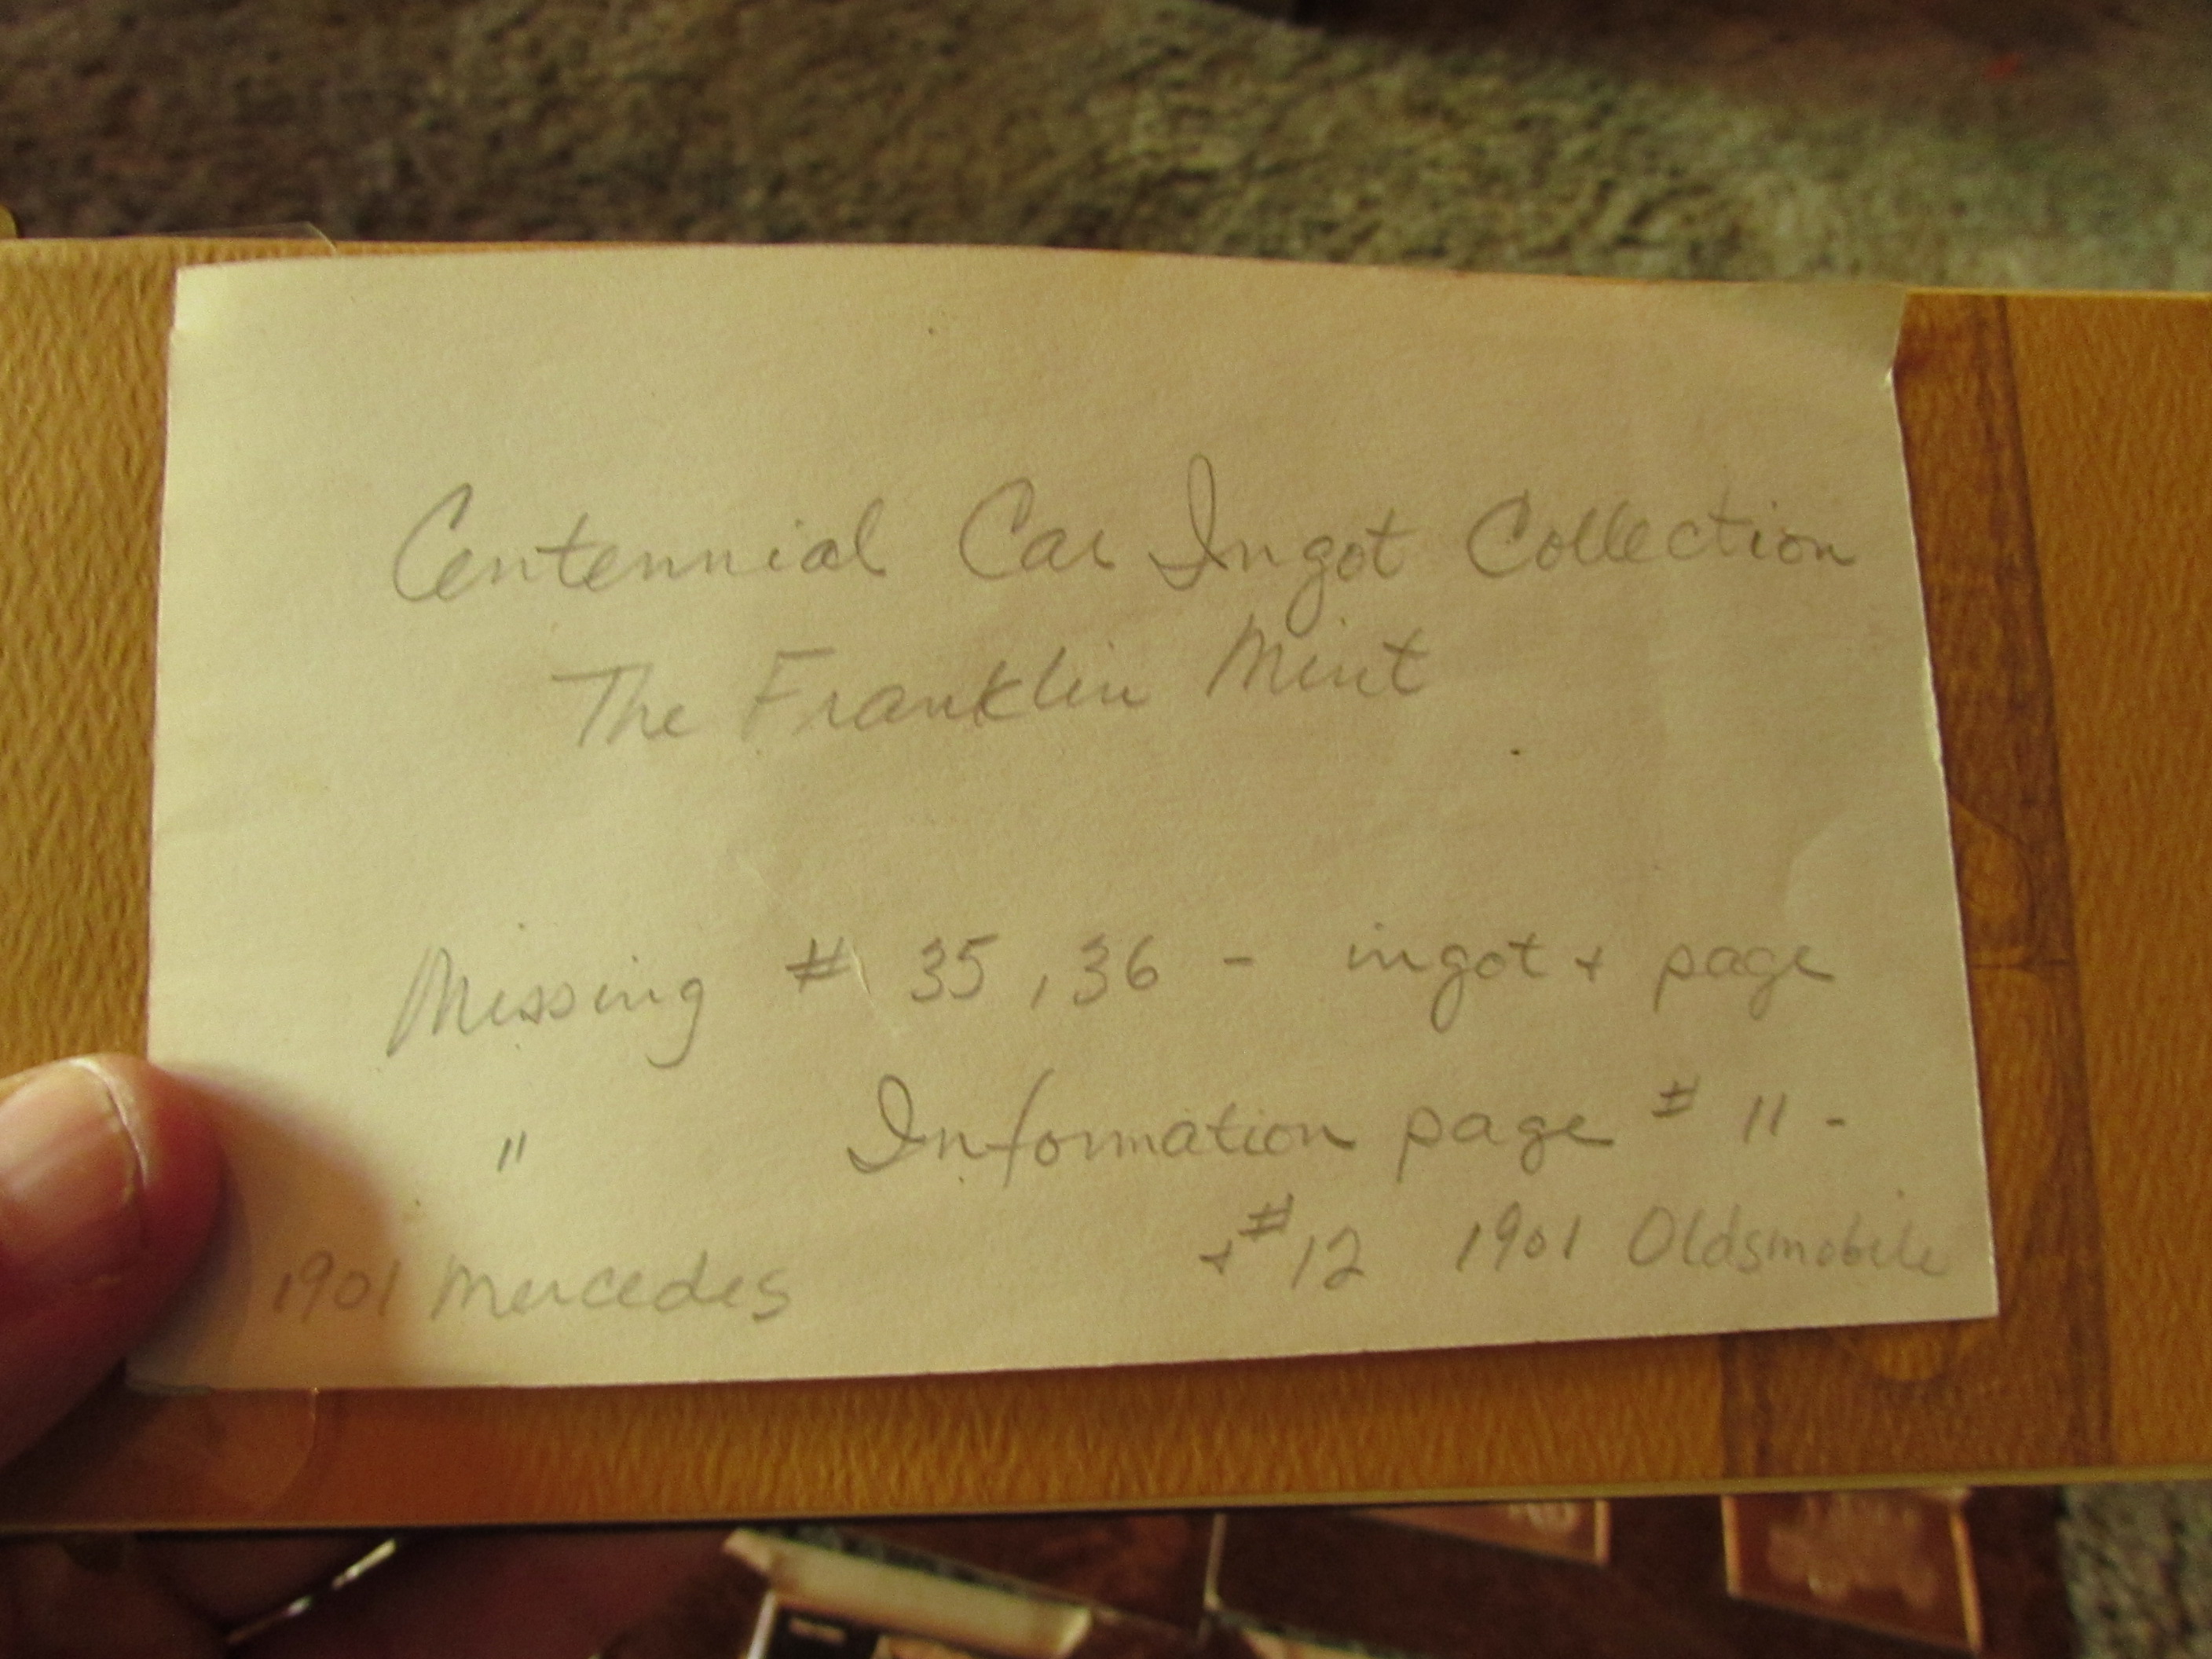 Centennial Car Ingot Collection
The Franklin Mint
Missing # 35, 36 - ingot + page
" Information page # 11 -
+ # 12 1901 Oldsmobile
1901 Mercedes